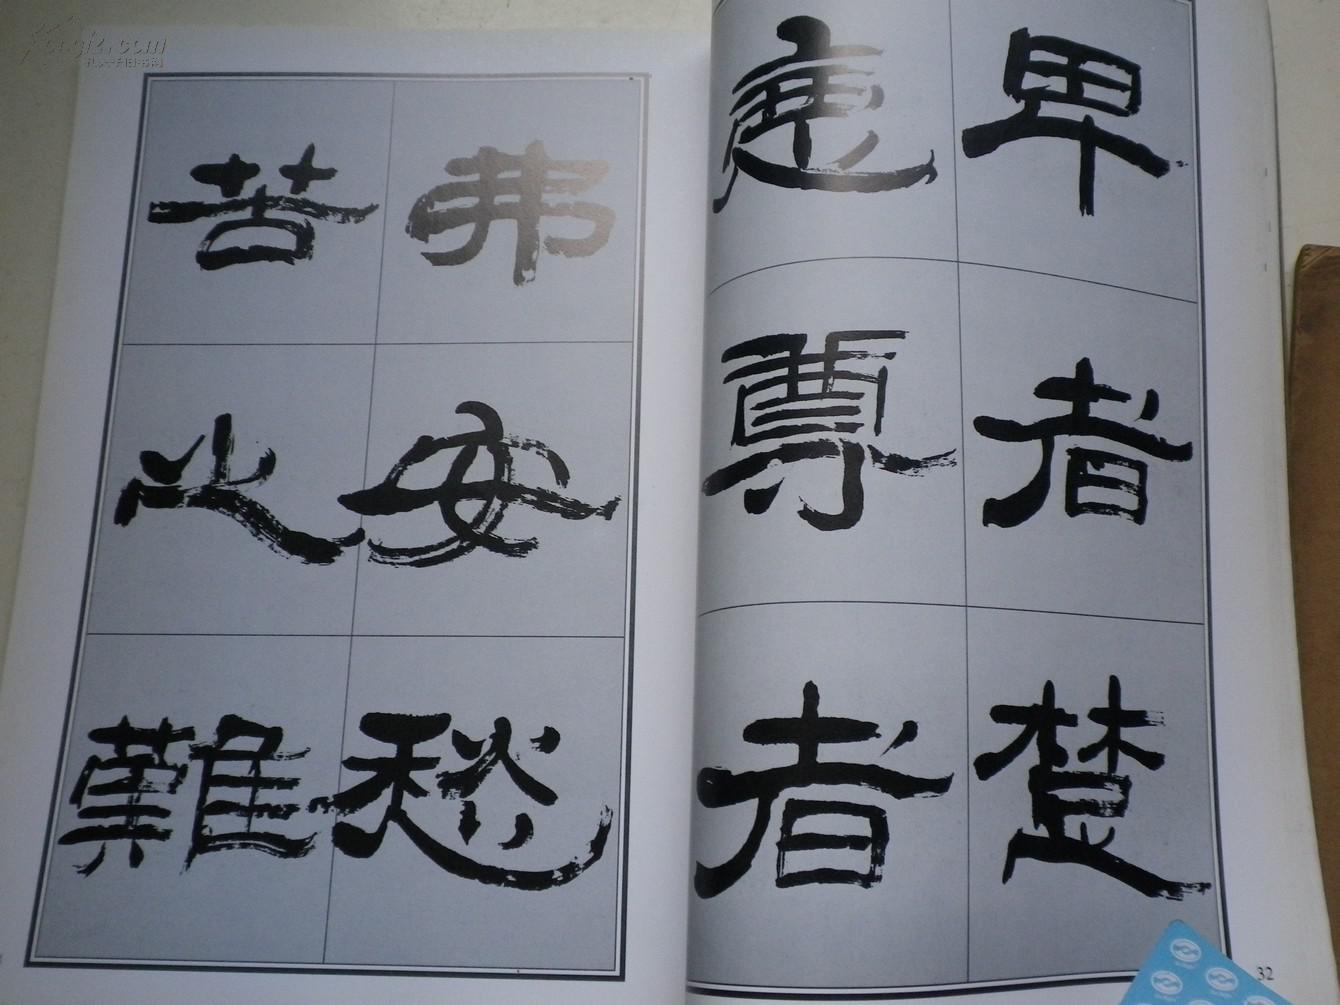 卑者楚
惡尊者
弗安愁
苦之難
32
Kongfz.com
孔夫子旧书网